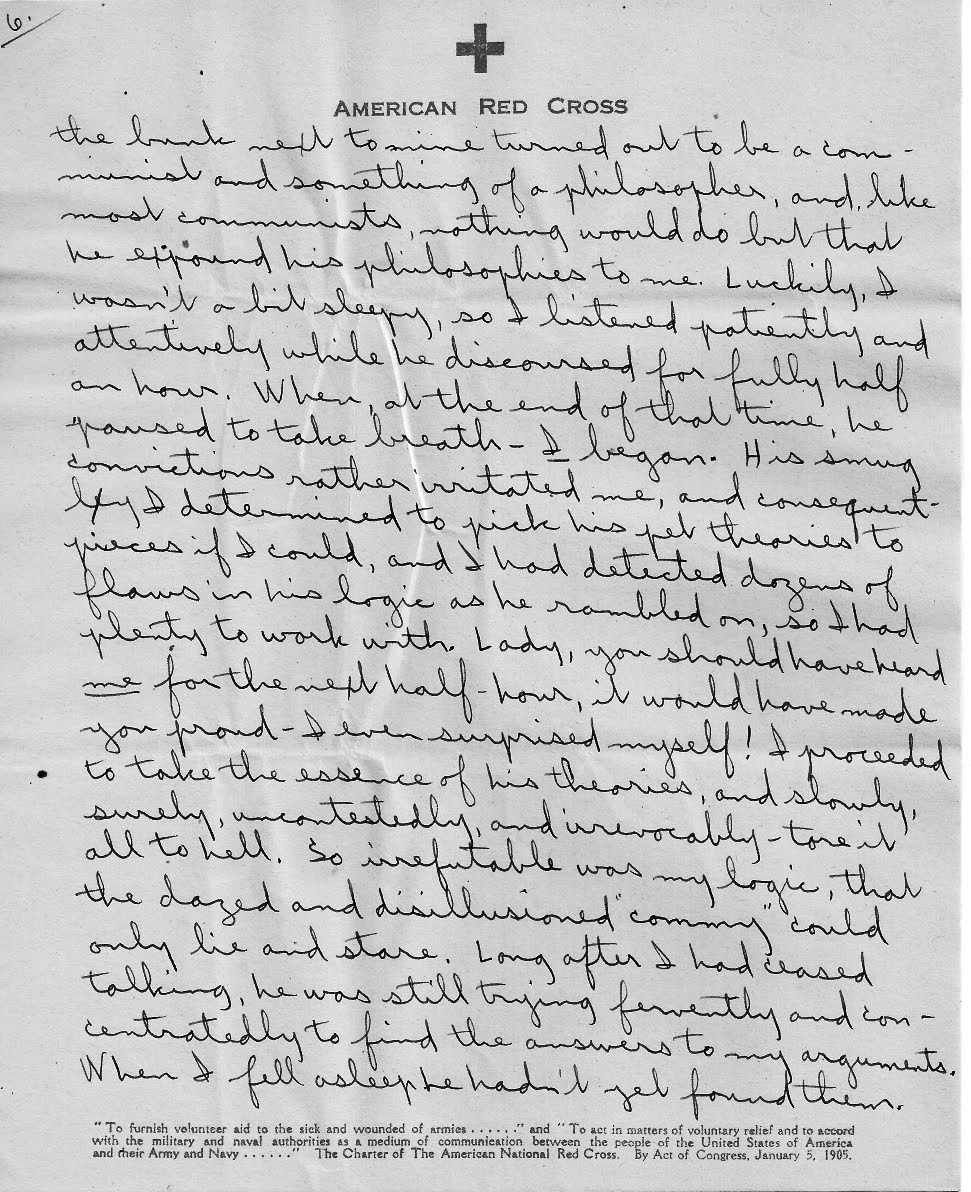 6.
AMERICAN RED CROSS
the bunk next to mine turned out to be a com-
munist and something of a philosopher, and, like
most communists, nothing would do but that
he expound his philosophies to me. Luckily, I
wasn't a bit sleepy, so I listened patiently and
attentively while he discoursed for fully half
an hour. When, at the end of that time, he
paused to take breath - I began. His smug
convictions rather irritated me, and consequent-
ly I determined to pick his pet theories to
pieces if I could, and I had detected dozens of
flaws in his logic as he rambled on, so I had
plenty to work with. Lady, you should have heard
me for the next half-hour, it would have made
you proud - I even surprised myself! I proceeded
to take the essence of his theories, and slowly,
surely, uncontestedly, and irrevocably - tore it
all to hell. So irrefutable was my logic, that
the dazed and disillusioned "commy" could
only lie and stare. Long after I had ceased
talking, he was still trying fervently and con-
centratedly to find the answers to my arguments.
When I fell asleep he hadn't yet found them.
"To furnish volunteer aid to the sick and wounded of armies ......" and "To act in matters of voluntary relief and to accord
with the military and naval authorities as a medium of communication between the people of the United States of America
and their Army and Navy ......" The Charter of The American National Red Cross. By Act of Congress, January 5, 1905.